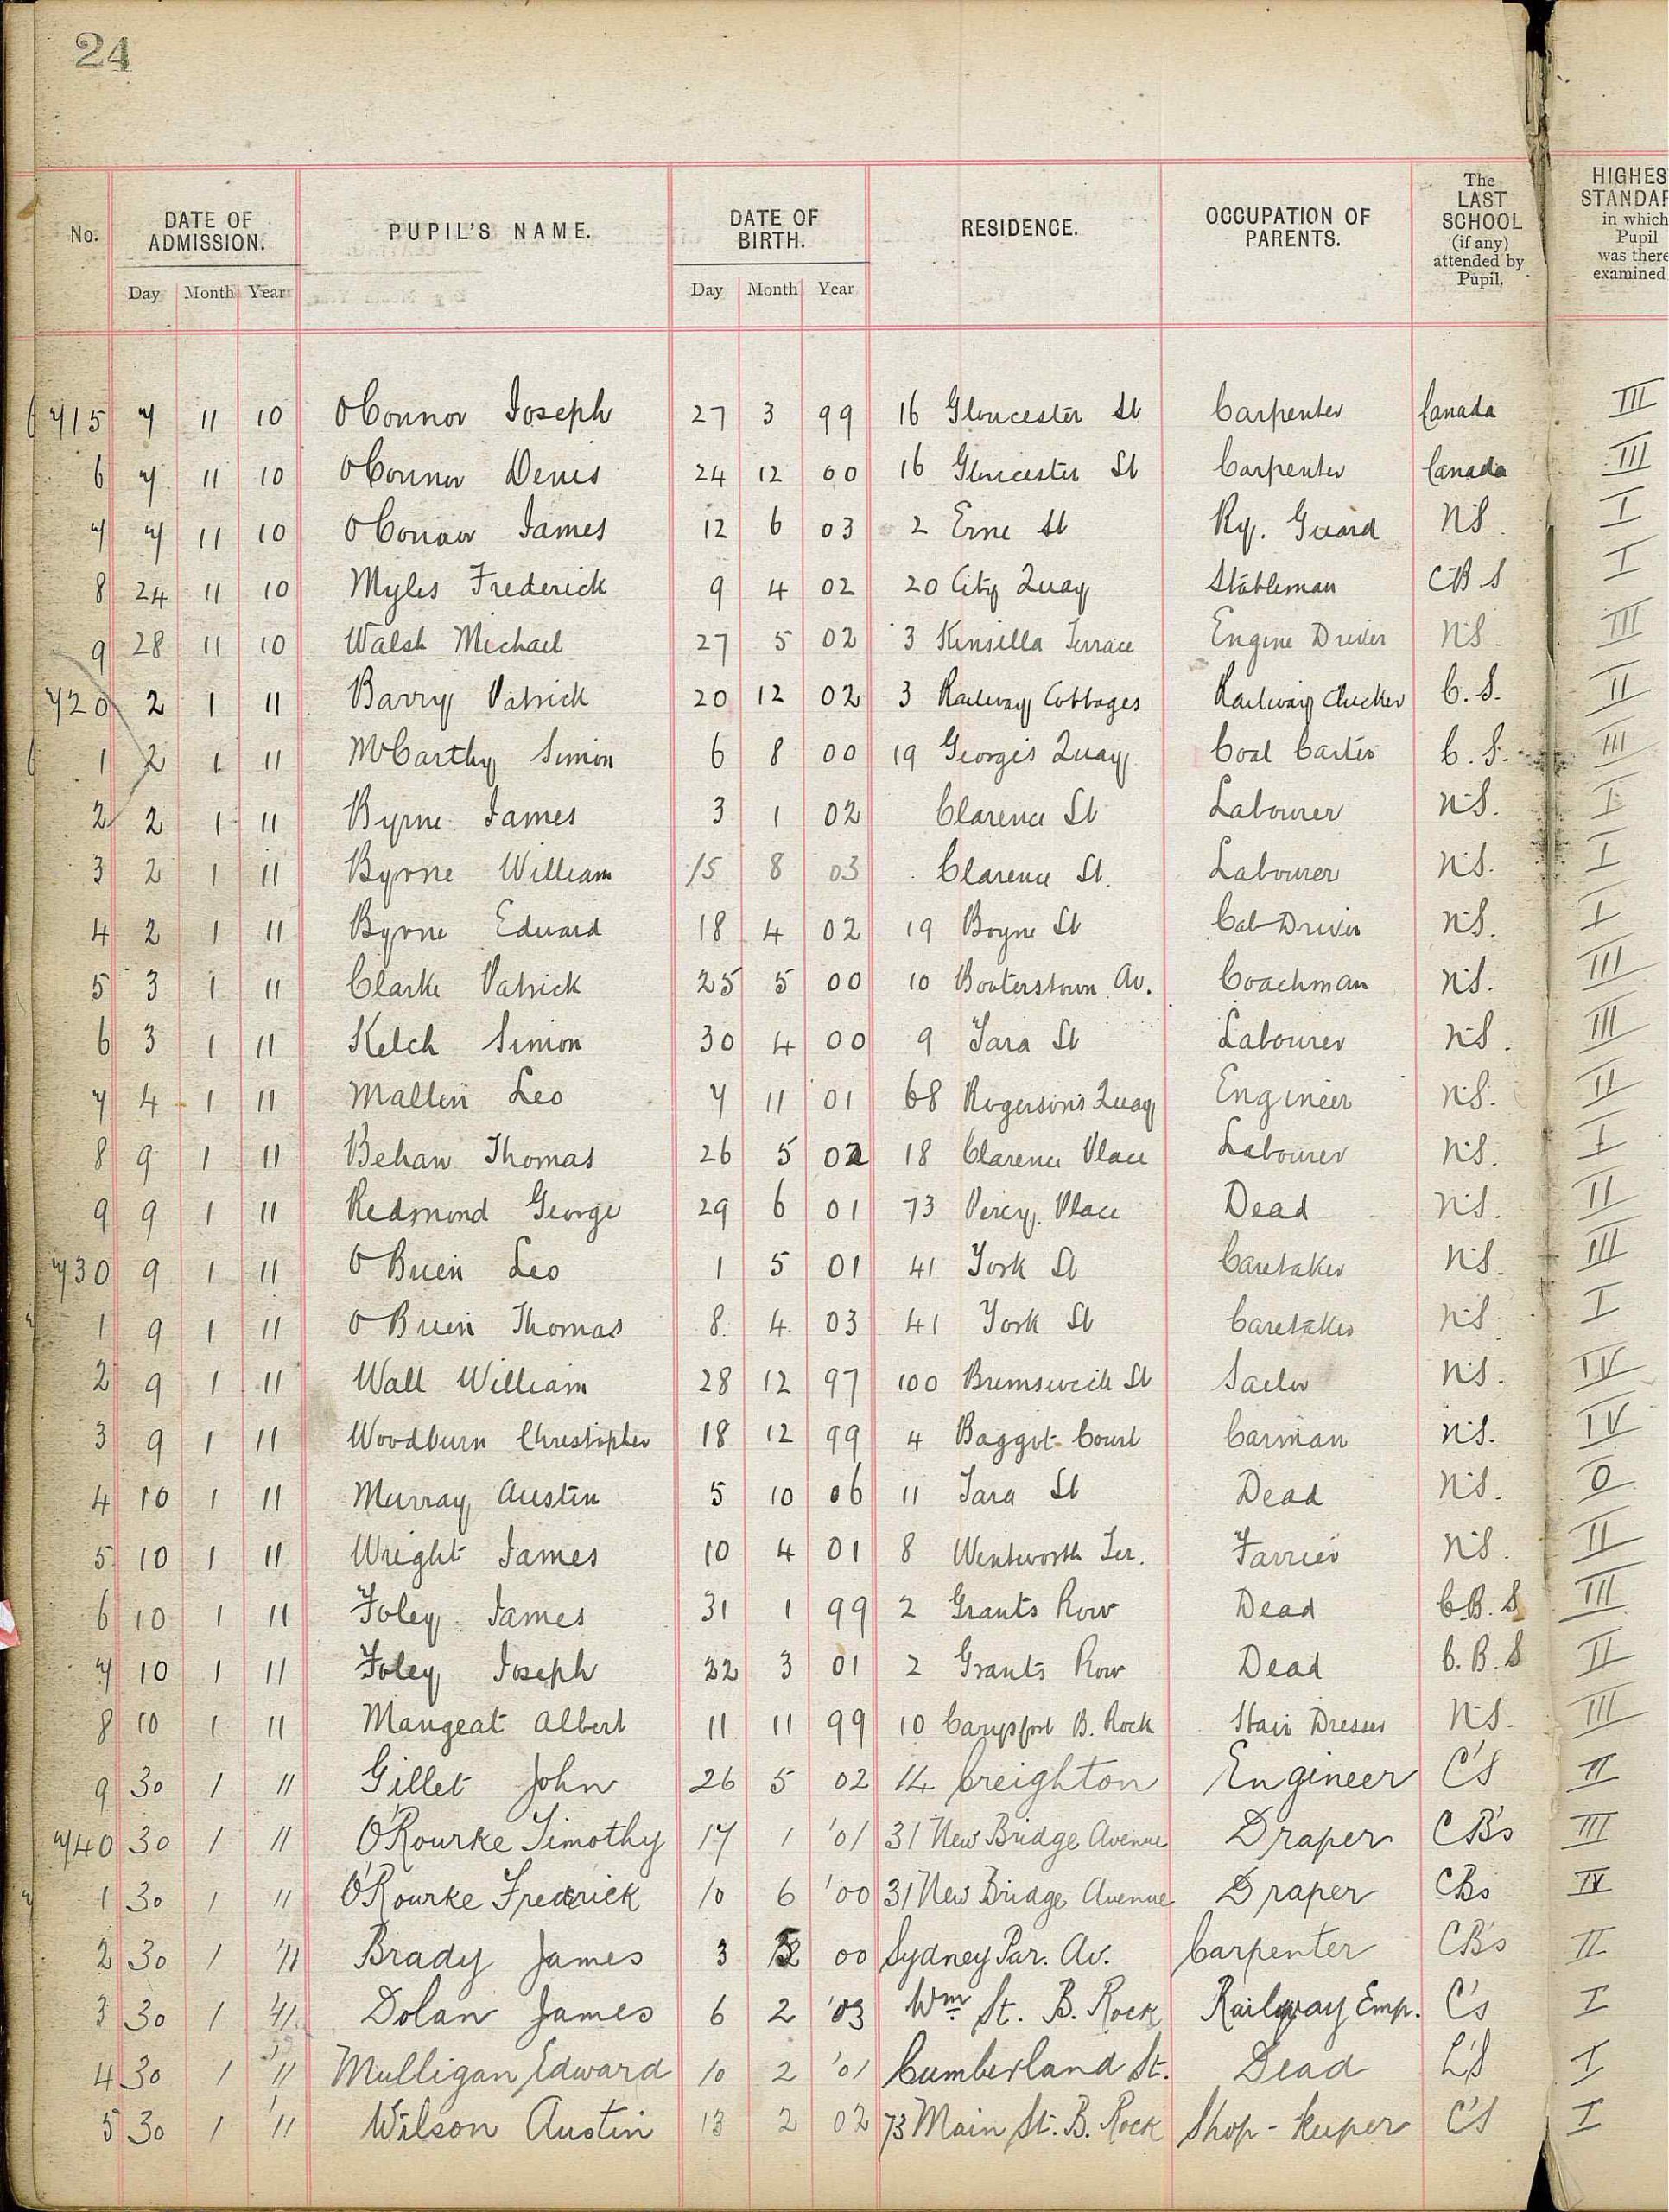 24
No. DATE OF ADMISSION. PUPIL'S NAME. DATE OF BIRTH. RESIDENCE. OCCUPATION OF PARENTS. The LAST SCHOOL (if any) attended by Pupil. HIGHES STANDAR in which Pupil was there examined
Day Month Year Day Month Year
715 7 11 10 OConnor Joseph 27 3 99 16 Gloucester St Carpenter Canada III
6 7 11 10 OConnor Denis 24 12 00 16 Gloucester St Carpenter Canada III
7 7 11 10 OConnor James 12 6 03 2 Erne St Ry. Guard N.S. I
8 24 11 10 Myles Frederick 9 4 02 20 City Quay Stableman C.B.S I
9 28 11 10 Walsh Michael 27 5 02 3 Kinsella Terrace Engine Driver N.S. III
720 2 1 11 Barry Patrick 20 12 02 3 Railway Cottages Railway Checker C.S. II
1 2 1 11 McCarthy Simon 6 8 00 19 George's Quay Coal Carter C.S. III
2 2 1 11 Byrne James 3 1 02 Clarence St Labourer N.S. I
3 2 1 11 Byrne William 15 8 03 Clarence St. Labourer N.S. I
4 2 1 11 Byrne Edward 18 4 02 19 Boyne St Cab-Driver N.S. I
5 3 1 11 Clarke Patrick 25 5 00 10 Booterstown Av. Coachman N.S. III
6 3 1 11 Kelch Simon 30 4 00 9 Tara St Labourer N.S. III
7 4 1 11 Mallin Leo 7 11 01 68 Rogerson's Quay Engineer N.S. II
8 9 1 11 Behan Thomas 26 5 02 18 Clarence Place Labourer N.S. I
9 9 1 11 Redmond George 29 6 01 73 Percy Place Dead N.S. II
730 9 1 11 O Brien Leo 1 5 01 41 York St Caretaker N.S. III
1 9 1 11 O Brien Thomas 8 4 03 41 York St Caretaker N.S I
2 9 1 11 Wall William 28 12 97 100 Brunswick St Sailor N.S. IV
3 9 1 11 Woodburn Christopher 18 12 99 4 Baggot Court Carman N.S. IV
4 10 1 11 Murray Austin 5 10 06 11 Tara St Dead N.S. O
5 10 1 11 Wright James 10 4 01 8 Wentworth Ter. Farrier N.S. II
6 10 1 11 Foley James 31 1 99 2 Grants Row Dead C.B.S III
7 10 1 11 Foley Joseph 22 3 01 2 Grants Row Dead C.B.S II
8 10 1 11 Mangeat Albert 11 11 99 10 Carysfort B. Rock Hair Dresser N.S. III
9 30 1 11 Gillet John 26 5 02 14 Creighton Engineer C'S II
740 30 1 11 O'Rourke Timothy 17 1 '01 31 New Bridge Avenue Draper CB's III
1 30 1 11 O'Rourke Frederick 10 6 '00 31 New Bridge Avenue Draper CBs IV
2 30 1 '11 Brady James 3 00 Sydney Par. Av. Carpenter CB's II
3 30 1 '11 Dolan James 6 2 '03 Wm St. B. Rock Railway Emp. C's I
4 30 1 '11 Mulligan Edward 10 2 '01 Cumberland St. Dead I
5 30 1 '11 Wilson Austin 13 2 02 73 Main St. B. Rock Shop-keeper C'S I